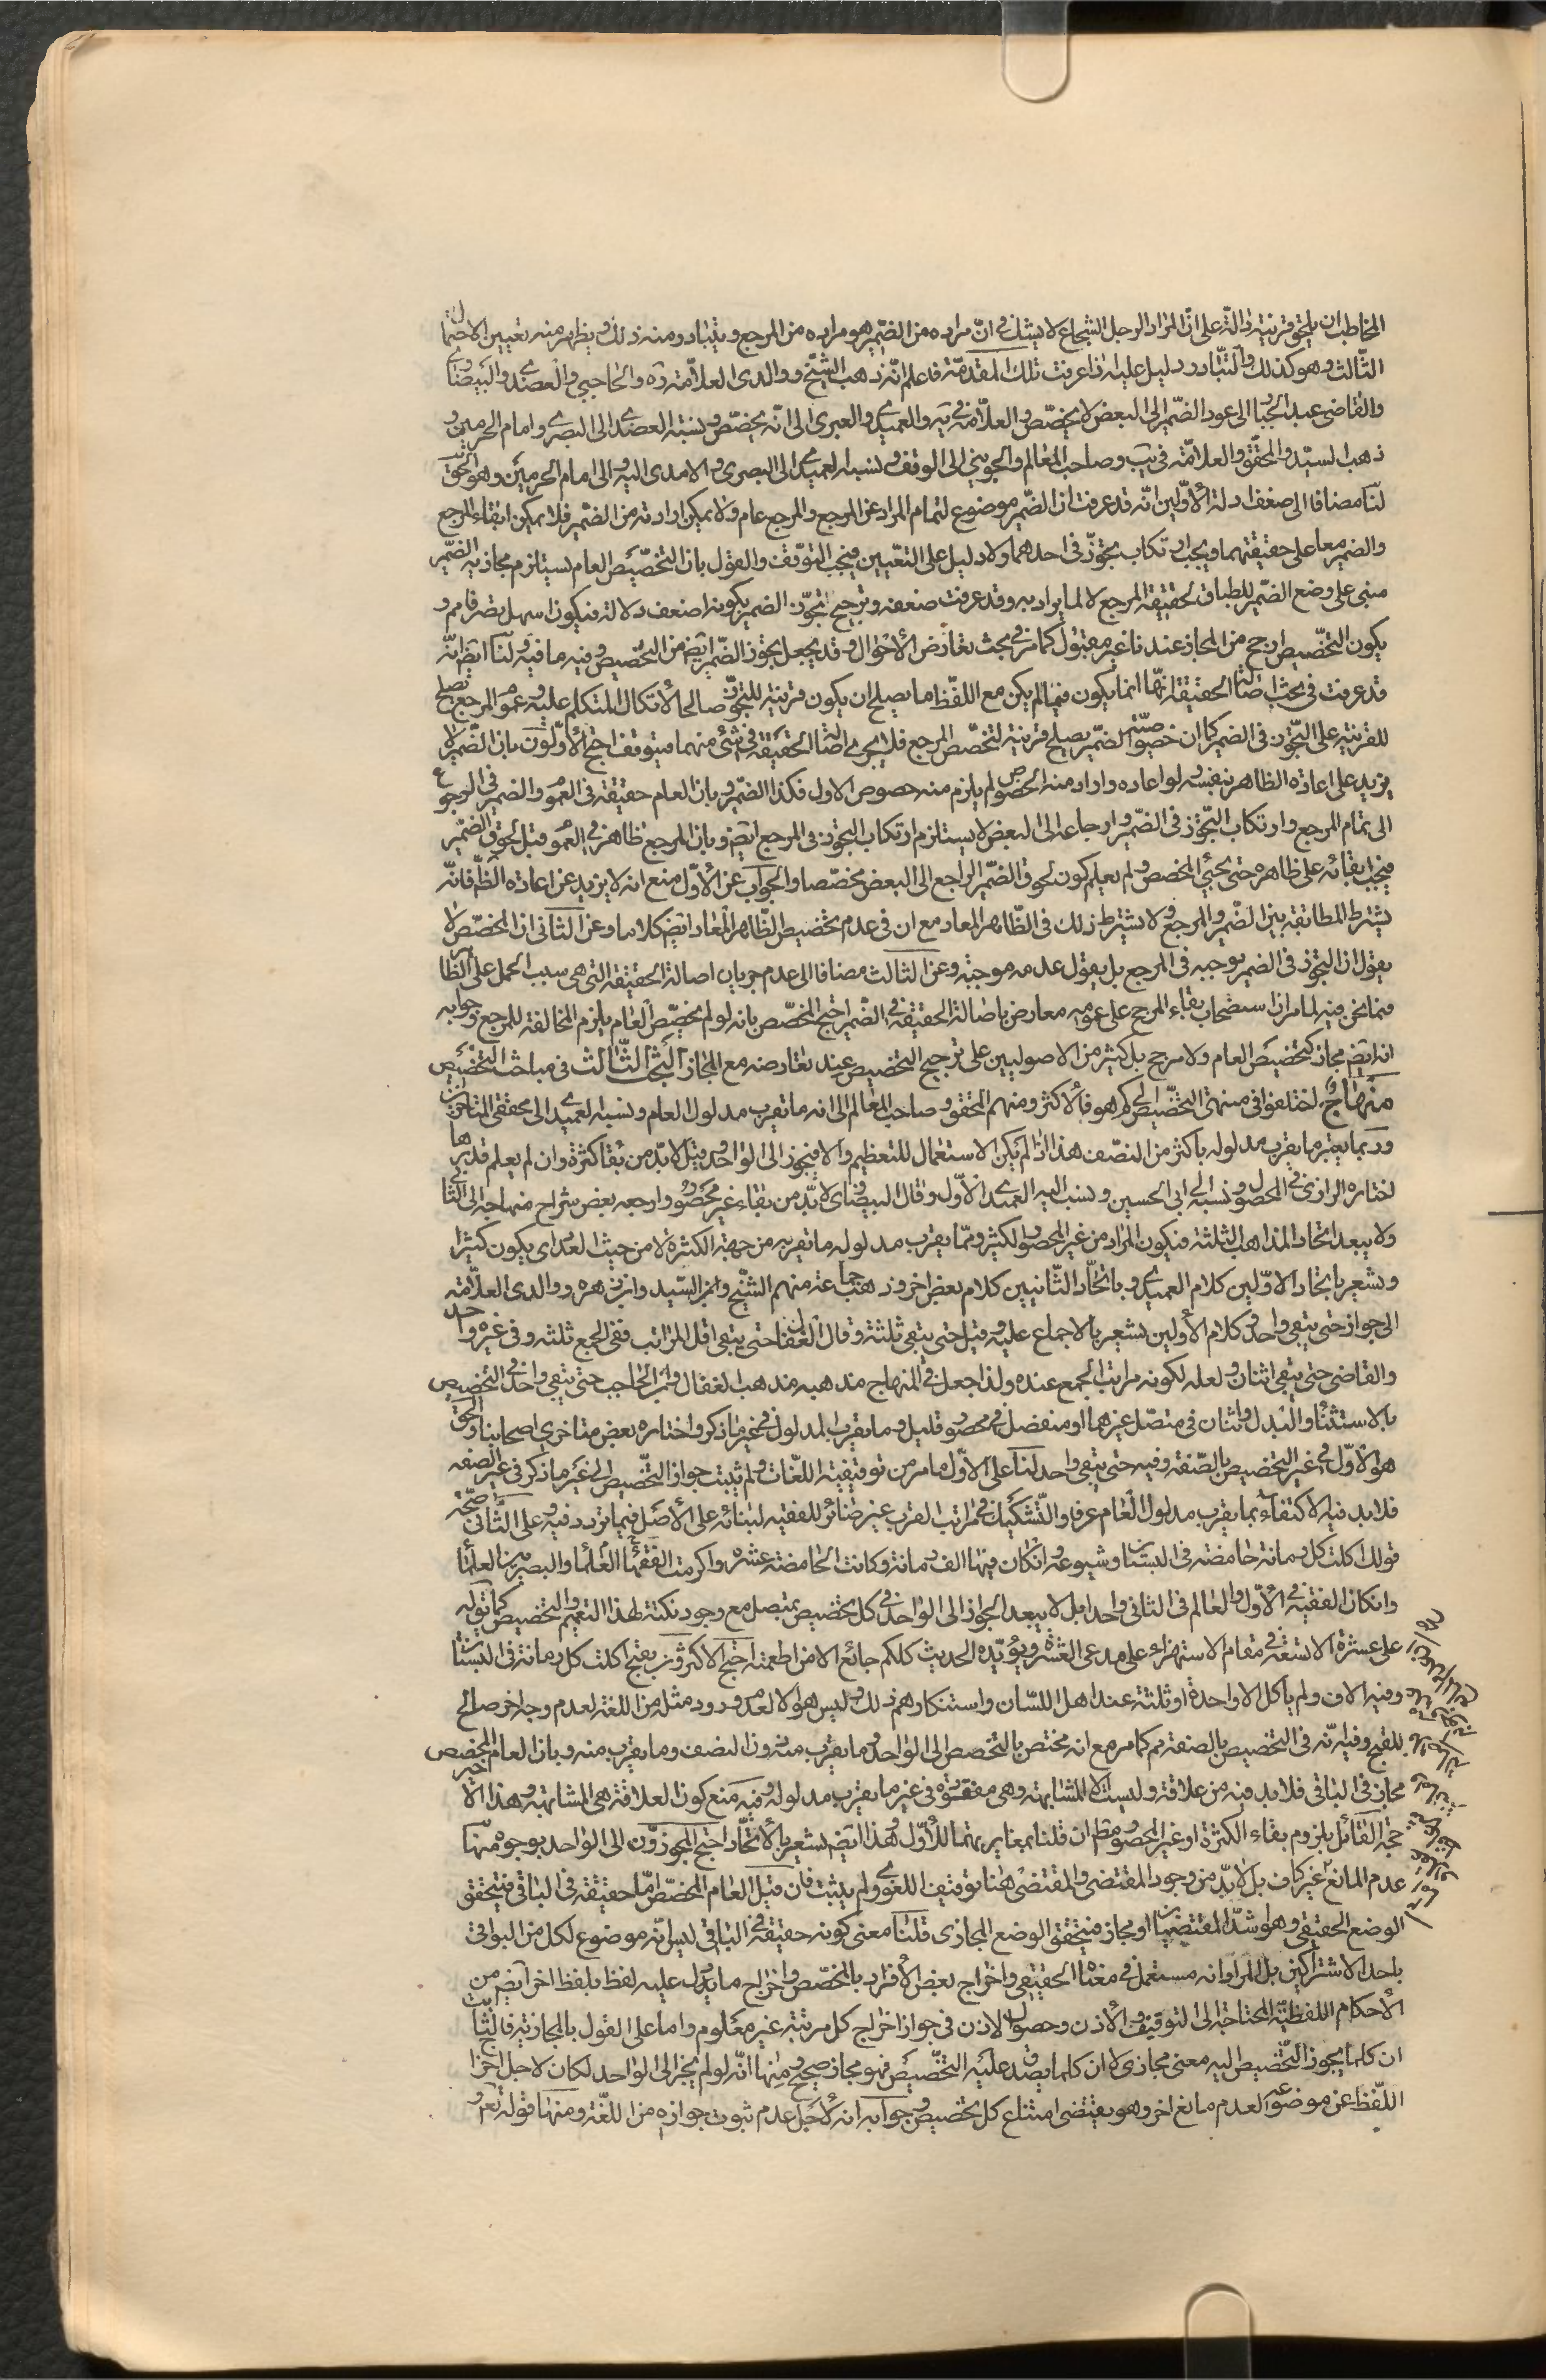 المخاطب ان يلحق قرينة دالة على ان المراد الرجل الشجاع لا يشك فى انّ مراده من الضمير هو مراده من المرجع ويتبادر منه ذلك ويظهر منه تعيين الاحتمال
الثالث وهو كذلك والتبادر دليل عليه اذا عرفت تلك المقدمة فاعلم انّه ذهب الشيخ ووالدى العلامة ره والحاجبى والعضدى والبيضاوى
والقاضى عبد الجبار الى عود الضمير الى البعض لا يخصّص والعلامة فى يه والعميدى والعبرى الى انّه يخصّص ونسبه العضدى الى البصرى وامام الحرمين و
ذهب السيّد والمحقق والعلامة فى يب وصاحب المعالم والجوينى الى الوقف ونسبه العميدى الى البصرى والامدى اليه والى امام الحرمين وهو الحق
لنا مضافا الى ضعف ادلة الأوّلين انّه قد عرفت ان الضمير موضوع لتمام المراد عن المرجع والمرجع عام ولا يمكن ارادته من الضمير فلا يمكن ابقاء المرجع
والضمير معا على حقيقتهما ويجب ارتكاب تجوّز فى احدهما ولا دليل على التعيين فيجب التوقف والقول بان التخصيص العام يستلزم مجازية الضمير
مبنى على وضع الضمير للطباق لحقيقة المرجع لا لما يراد به وقد عرفت ضعفه وترجيح تجوّز الضمير بكونه اضعف دلالة فيكون اسهل تصرفا مم و
يكون التخصيص ارجح من المجاز عندنا غير مقبول كما مر فى بحث تعارض الأحوال وقد يجعل تجوز الضمير ايضا من التخصيص وفيه ما فيه ولنا ايضا انّه
قد عرفت فى بحث اصالة الحقيقة انها انما يكون فيما لم يكن مع اللفظ ما يصلح ان يكون قرينة للتجوّز صالحا لاتكال المتكلم عليه وعموم المرجع يصلح
للقرينة على التجوّز فى الضمير كما ان خصوصيّة الضمير يصلح قرينة لتخصّص المرجع فلا يجرى اصالة الحقيقة فى شئ منهما فيتوقف احتج الأوّلون بان الضمير لا
يزيد على اعادة الظاهر بنفسه ولو اعاده واراد منه الخصوص لم يلزم منه خصوص الاول فكذا الضمير وبان العام حقيقة فى العموم والضمير فى الرجوع
الى تمام المرجع وارتكاب التجوّز فى الضمير وارجاعه الى البعض لا يستلزم ارتكاب التجوّز فى المرجع ايضا وبان المرجع ظاهر فى العموم قبل لحوق الضمير
فيجب ابقائه على ظاهره حتى يجئ المخصص ولم يعلم كون لحوق الضمير الراجع الى البعض مخصّصا والجواب عن الأوّل منع انه لا يزيد عن اعادة الظ فانّه
يشترط المطابقة بين الضمير والمرجع ولا يشترط ذلك فى الظاهر المعاد مع ان فى عدم تخصيص الظاهر المعاد ايضا كلاما وعن الثانى ان المخصّص لا
يقول ان التجوّز فى الضمير يوجبه فى المرجع بل يقول عدمه موجبه وعن الثالث مضافا الى عدم جريان اصالة الحقيقة التى هى سبب الحمل على الظاهر
فيما نحن فيه لما مر ان استصحاب بقاء المرجع على عمومه معارض باصالة الحقيقة فى الضمير احتج المخصّص بانه لو لم يخصّص العام يلزم المخالفة للمرجع وجوابه
انه ايضا مجاز كتخصيص العام ولا مرجح بل كثير من الاصوليين على ترجيح التخصيص عند تعارضه مع المجاز البحث الثالث فى مباحث التخصيص
منهاج اختلفوا فى منتهى التخصيص الى كم هو فالأكثر ومنهم المحقق وصاحب المعالم الى انه ما يقرب مدلول العام ونسبه العميدى الى محققى المتأخرين
وربما يعبر ما يقرب مدلوله باكثر من النصف هذا اذا لم يكن الاستعمال للتعظيم والا فيجوز الى الواحد وقيل لا بدّ من بقا كثرة وان لم يعلم قدرها
اختاره الرازى فى المحصول ونسبه الى ابى الحسين ونسب اليه العميدى الأوّل وقال البيضاوى لا بدّ من بقاء غير محصور وارجعه بعض شراح منهاجه الى الثانى
ولا يبعد اتحاد المذاهب الثلثة فيكون المراد من غير المحصور الكثير وممّا يقرب مدلوله ما تقربه من جهة الكثرة لا من حيث العدد اى يكون كثيرا
ويشعر باتحاد الاوّلين كلام العميدى وباتحاد الثانيين كلام بعض اخر وذهب جماعة منهم الشيخ وابن السيّد وابن زهره ووالدى العلامة
الى جوازه حتى يبقى واحد وكلام الأولين يشعر بالاجماع عليه وقيل حتى يبقى ثلثة وقال القفال حتى يبقى اقل المراتب ففى الجمع ثلثه وفى غيره واحد
والقاضى حتى يبقى اثنان ولعله لكونه مراتب الجمع عنده ولذا جعل فى المنهاج مذهبه مذهب القفال وابن الحاجب حتى يبقى واحد فى التخصيص
بالاستثناء والبدل واثنان فى متصل غيرهما او منفصل فى محصور قليل وما يقرب المدلول فى غير ما ذكر واختاره بعض متاخرى اصحابنا والحق
هو الأوّل فى غير التخصيص بالصّفة وفيه حتى يبقى واحد لنا على الاوّل ما مر من توقيفية اللغات ولم يثبت جواز التخصيص الى غير ما ذكر فى غير الصفه
فلا بد فيه الاكتفاء بما يقرب مدلول العام عرفا والتّشكيك فى مراتب القرب غير ضائر للفقيه لبنائه على الأصل فيما تردد فيه وعلى الثانى صحّة
قولك اكلت كل رمانة حامضة فى البستان وشيوعه وان كان فيها الف رمانة وكانت الحامضة عشره واكرمت الفقهاء العلماء والبصريين العلماء
وان كان الفقيه فى الأوّل والعالم فى الثانى واحدا بل لا يبعد الجواز الى الواحد فى كل تخصيص بمتصل مع وجود نكتة لهذا التعميم والتخصيص كما تقول له
على عشرة الا تسعة فى مقام الاستهزاء على مدعى العشرة ويؤيّده الحديث كلكم جائع الا من اطعمته احتج الأكثرون بقبح اكلت كل رمانة فى البستان
وفيه الاف ولم يأكل الا واحدة او ثلثة عند اهل اللسّان واستنكارهم ذلك وليس هو الا لعدم ورود مثله من اللغة لعدم وجه اخر صالح
للقبح وفيه انّه فى التخصيص بالصفة مم كما مر مع انه مختص بالتخصص الى الواحد وما يقرب منه دون النصف وما يقرب منه وبان العام المخصص
مجاز فى الباقى فلا بد فيه من علاقة وليست الا المشابهة وهى مفقودة فى غير ما يقرب مدلوله وفيه منع كون العلاقة هى المشابهة وهذا الاخير
حجّة القائل بلزوم بقاء الكثرة او غير المحصور مط ان قلنا بمغايرتهما للأوّل وهذا ايضا يشعر بالاتحاد احتج المجوزون الى الواحد بوجوه منها
عدم المانع غير كاف بل لا بدّ من وجود المقتضى والمقتضى هنا توقيف اللغوى ولم يثبت فان قيل العام المخصّص امّا حقيقة فى الباقى فيتحقق
الوضع الحقيقى وهو اشدّ المقتضيات او مجاز فيتحقق الوضع المجازى قلنا معنى كونه حقيقة فى الباقى ليس انه موضوع لكل من البواقى
باحد الاشتراكين بل المراد انه مستعمل فى معناه الحقيقى واخراج بعض الأفراد بالمخصّص واخراج ما يدل عليه لفظ بلفظ اخر ايضا من
الأحكام اللفظيّة المحتاجة الى التوقيف والأذن وحصول الاذن فى جواز اخراج كل مرتبة غير معلوم واما على القول بالمجازية فالثابت
ان كلما يجوز التخصيص اليه معنى مجازى لا ان كلما يصدق عليه التخصيص فهو مجاز صحيح ومنها انّه لو لم يجز الى الواحد لكان لاجل اخراج
اللّفظ عن موضوعه لعدم مانع اخر وهو يقتضى امتناع كل تخصيص وجوابه انه لأجل عدم ثبوت جوازه من اللغة ومنها قوله تعر